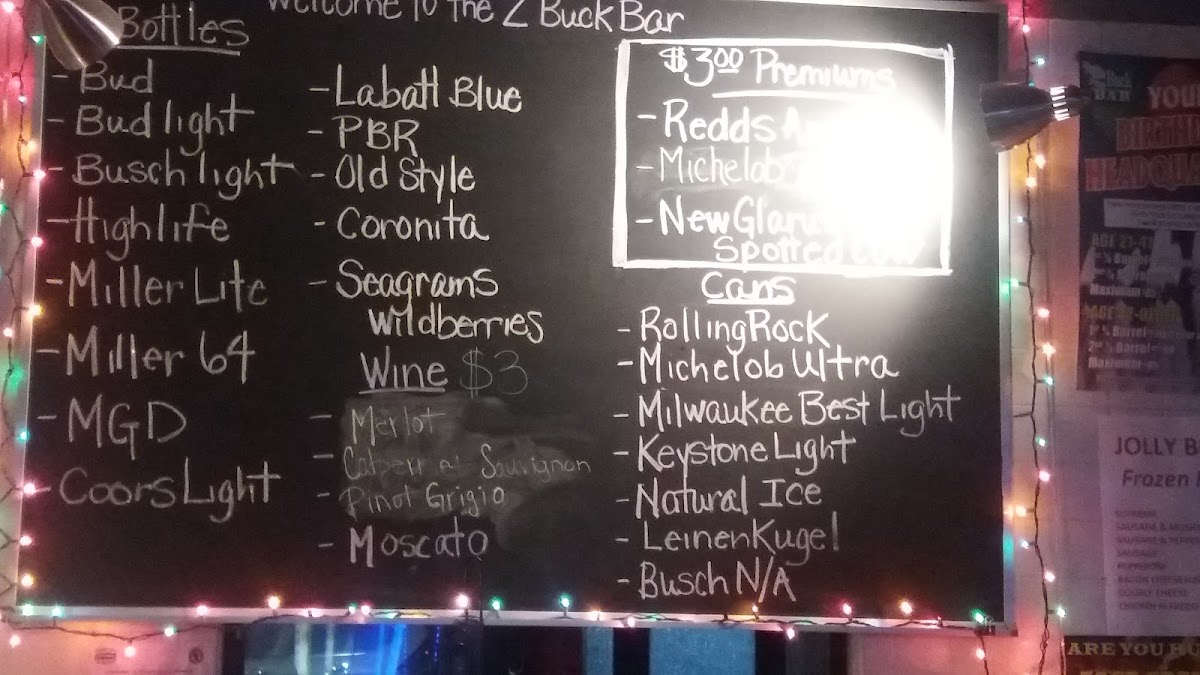 Welcome To The 2 Buck Bar
Bottles
- Bud
- Bud light
- Busch light
- High life
- Miller Lite
- Miller 64
- MGD
- Coors Light
- Labatt Blue
- PBR
- Old Style
- Coronita
- Seagrams
Wildberries
Wine $3
- Merlot
- Sauvignon
- Pinot Grigio
- Moscato
$3.00 Premiums
- Redds
- Michelob
- New Glarus
Spotted Cow
Cans
- Rolling Rock
- Michelob Ultra
- Milwaukee Best Light
- Keystone Light
- Natural Ice
- Leinenkugel
- Busch N/A
BAR
YOU
AGE 21-41
JOLLY B
Frozen
SAUSAGE
PEPPERONI
DOUBLE CHEESE
ARE YOU HU